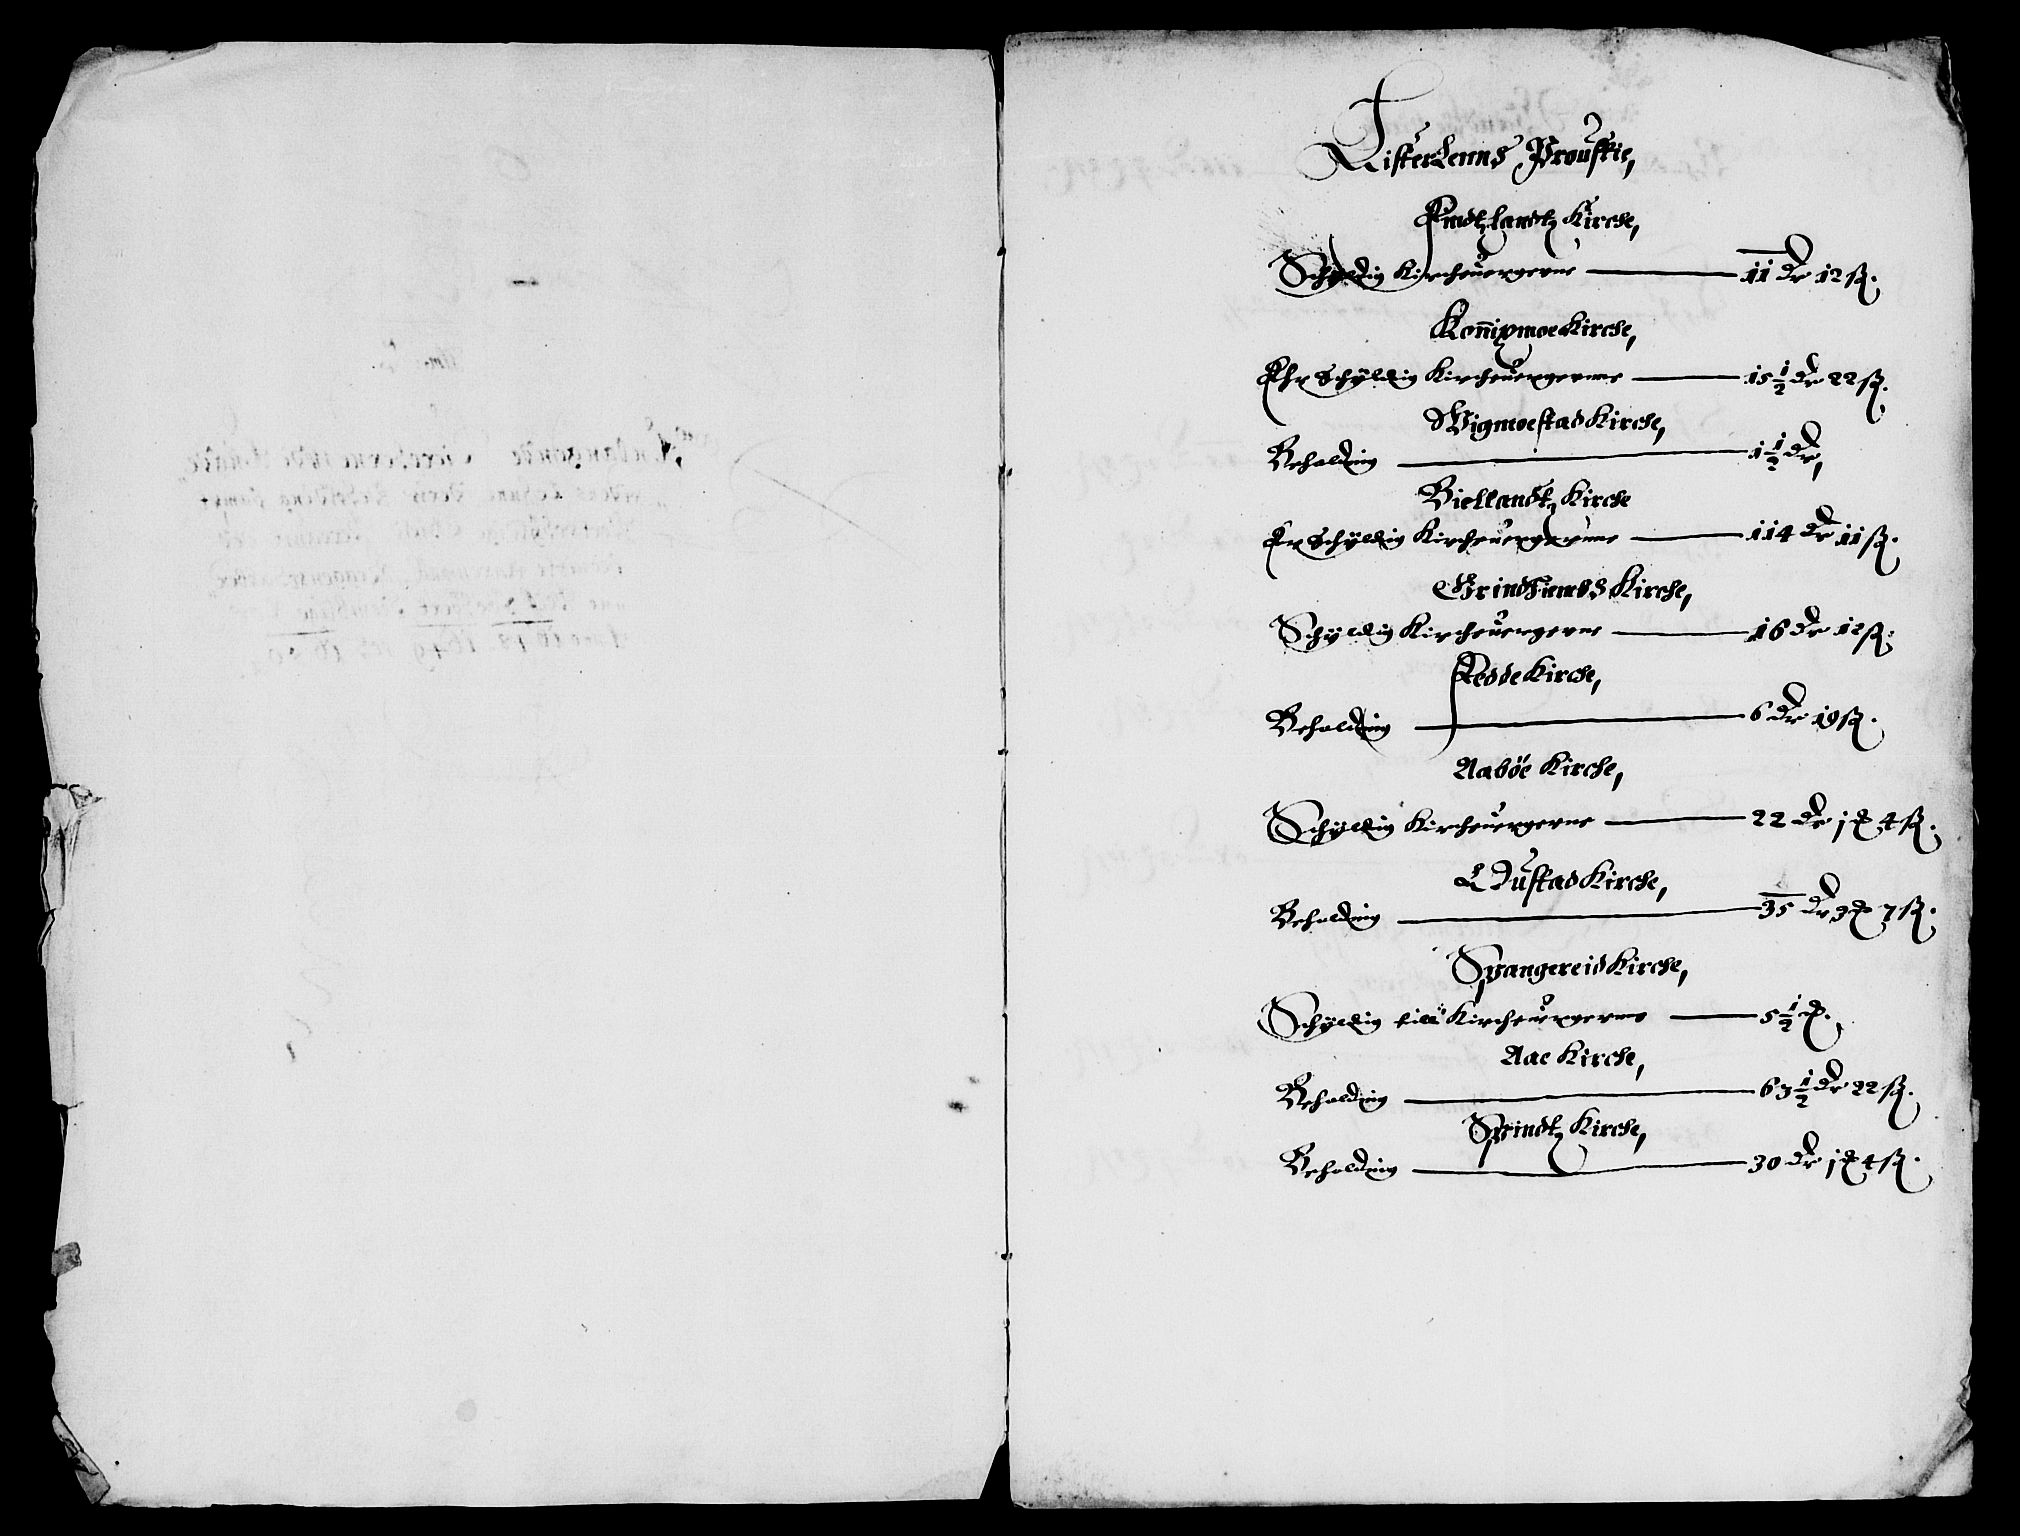 Listerlenns Proustie,
Findtzlandtz Kirche,
Schyldig Kircheuergerne 11 dr 12 ß.
Konnixmoe Kirche,
Ehr Schyldig Kircheuergerne 15 1/2 dr 22 ß.
Wigmoestad Kirche,
Beholding 1 1/2 dr,
Biellandtz Kirche
Er Schyldig Kircheuergerne 114 dr 11 ß.
Grindhiembs Kirche,
Schyldig Kircheuergerne 16 dr 12 ß.
Fedde Kirche,
Beholding 6 dr 19 ß.
Aaböe Kirche,
Schyldig Kircheuergerne 22 dr 1 ꝺ 4 ß.
Kirche,
Beholding 35 dr 3 ꝺ 7 ß.
Spangereid Kirche,
Schyldig till Kircheuergerne 5 1/2 ꝺ.
Aae Kirche,
Beholding 63 1/2 dr 22 ß.
Spindtz Kirche,
Beholding 30 dr 1 ꝺ 4 ß.